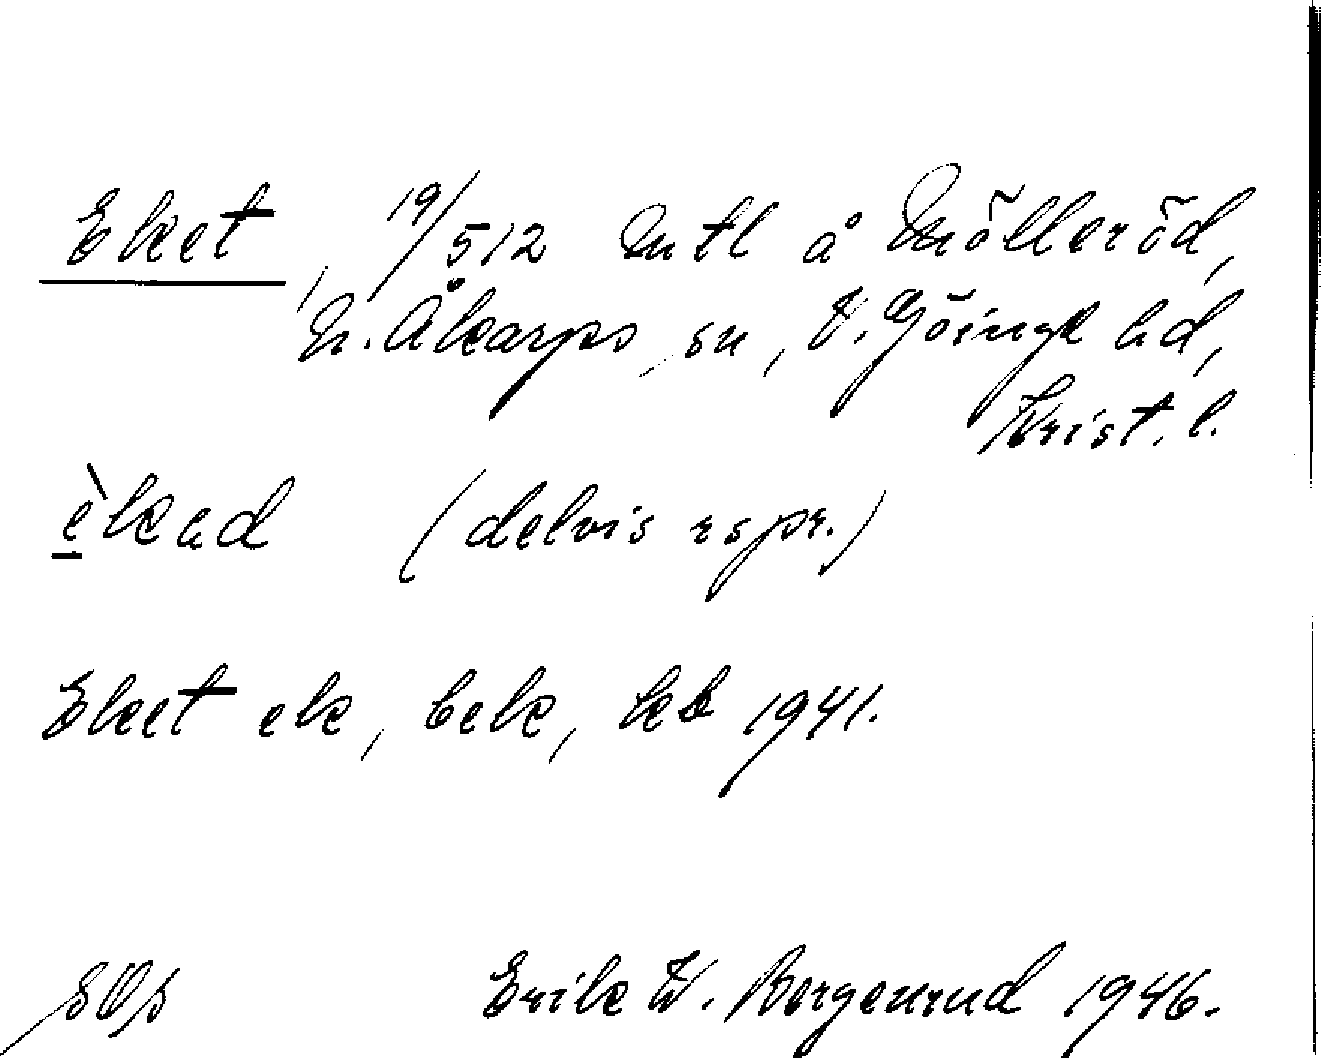 Eket, 19/512 mtl å Mölleröd,
N. Åkarps sn, V. Göinge hd,
Krist. l.
èkəd (delvis rspr.)
Eket ek, bek, kb 1941.
Erik W. Bergenrud 1946.